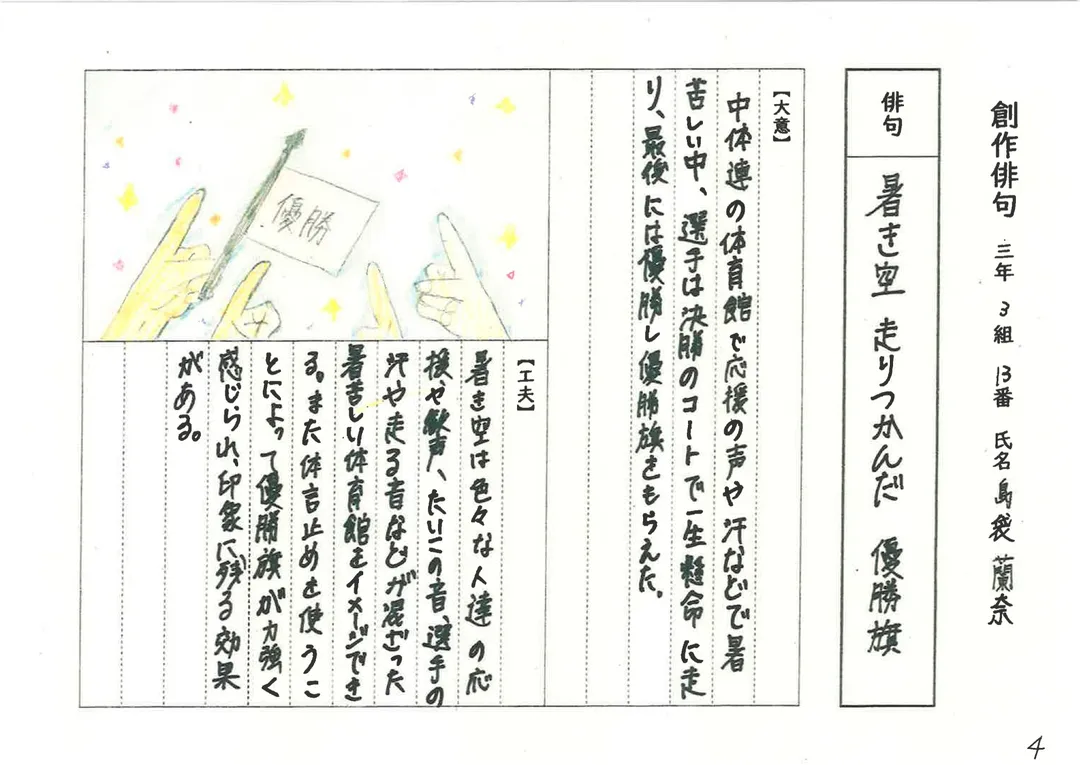 創作俳句 三年 3組 13番 氏名 島袋 蘭奈
俳句
暑き空 走りつかんだ 優勝旗
【大意】
中体連の体育館で応援の声や汗などで暑
苦しい中、選手は決勝のコートで一生懸命に走
り、最後には優勝し優勝旗をもらえた。
優勝
【工夫】
暑き空は色々な人達の応
援や歓声、たいこの音、選手の
汗や走る音などが混ざった
暑苦しい体育館をイメージでき
る。また体言止めを使うこ
とによって優勝旗が力強く
感じられ、印象に残る効果
がある。
4